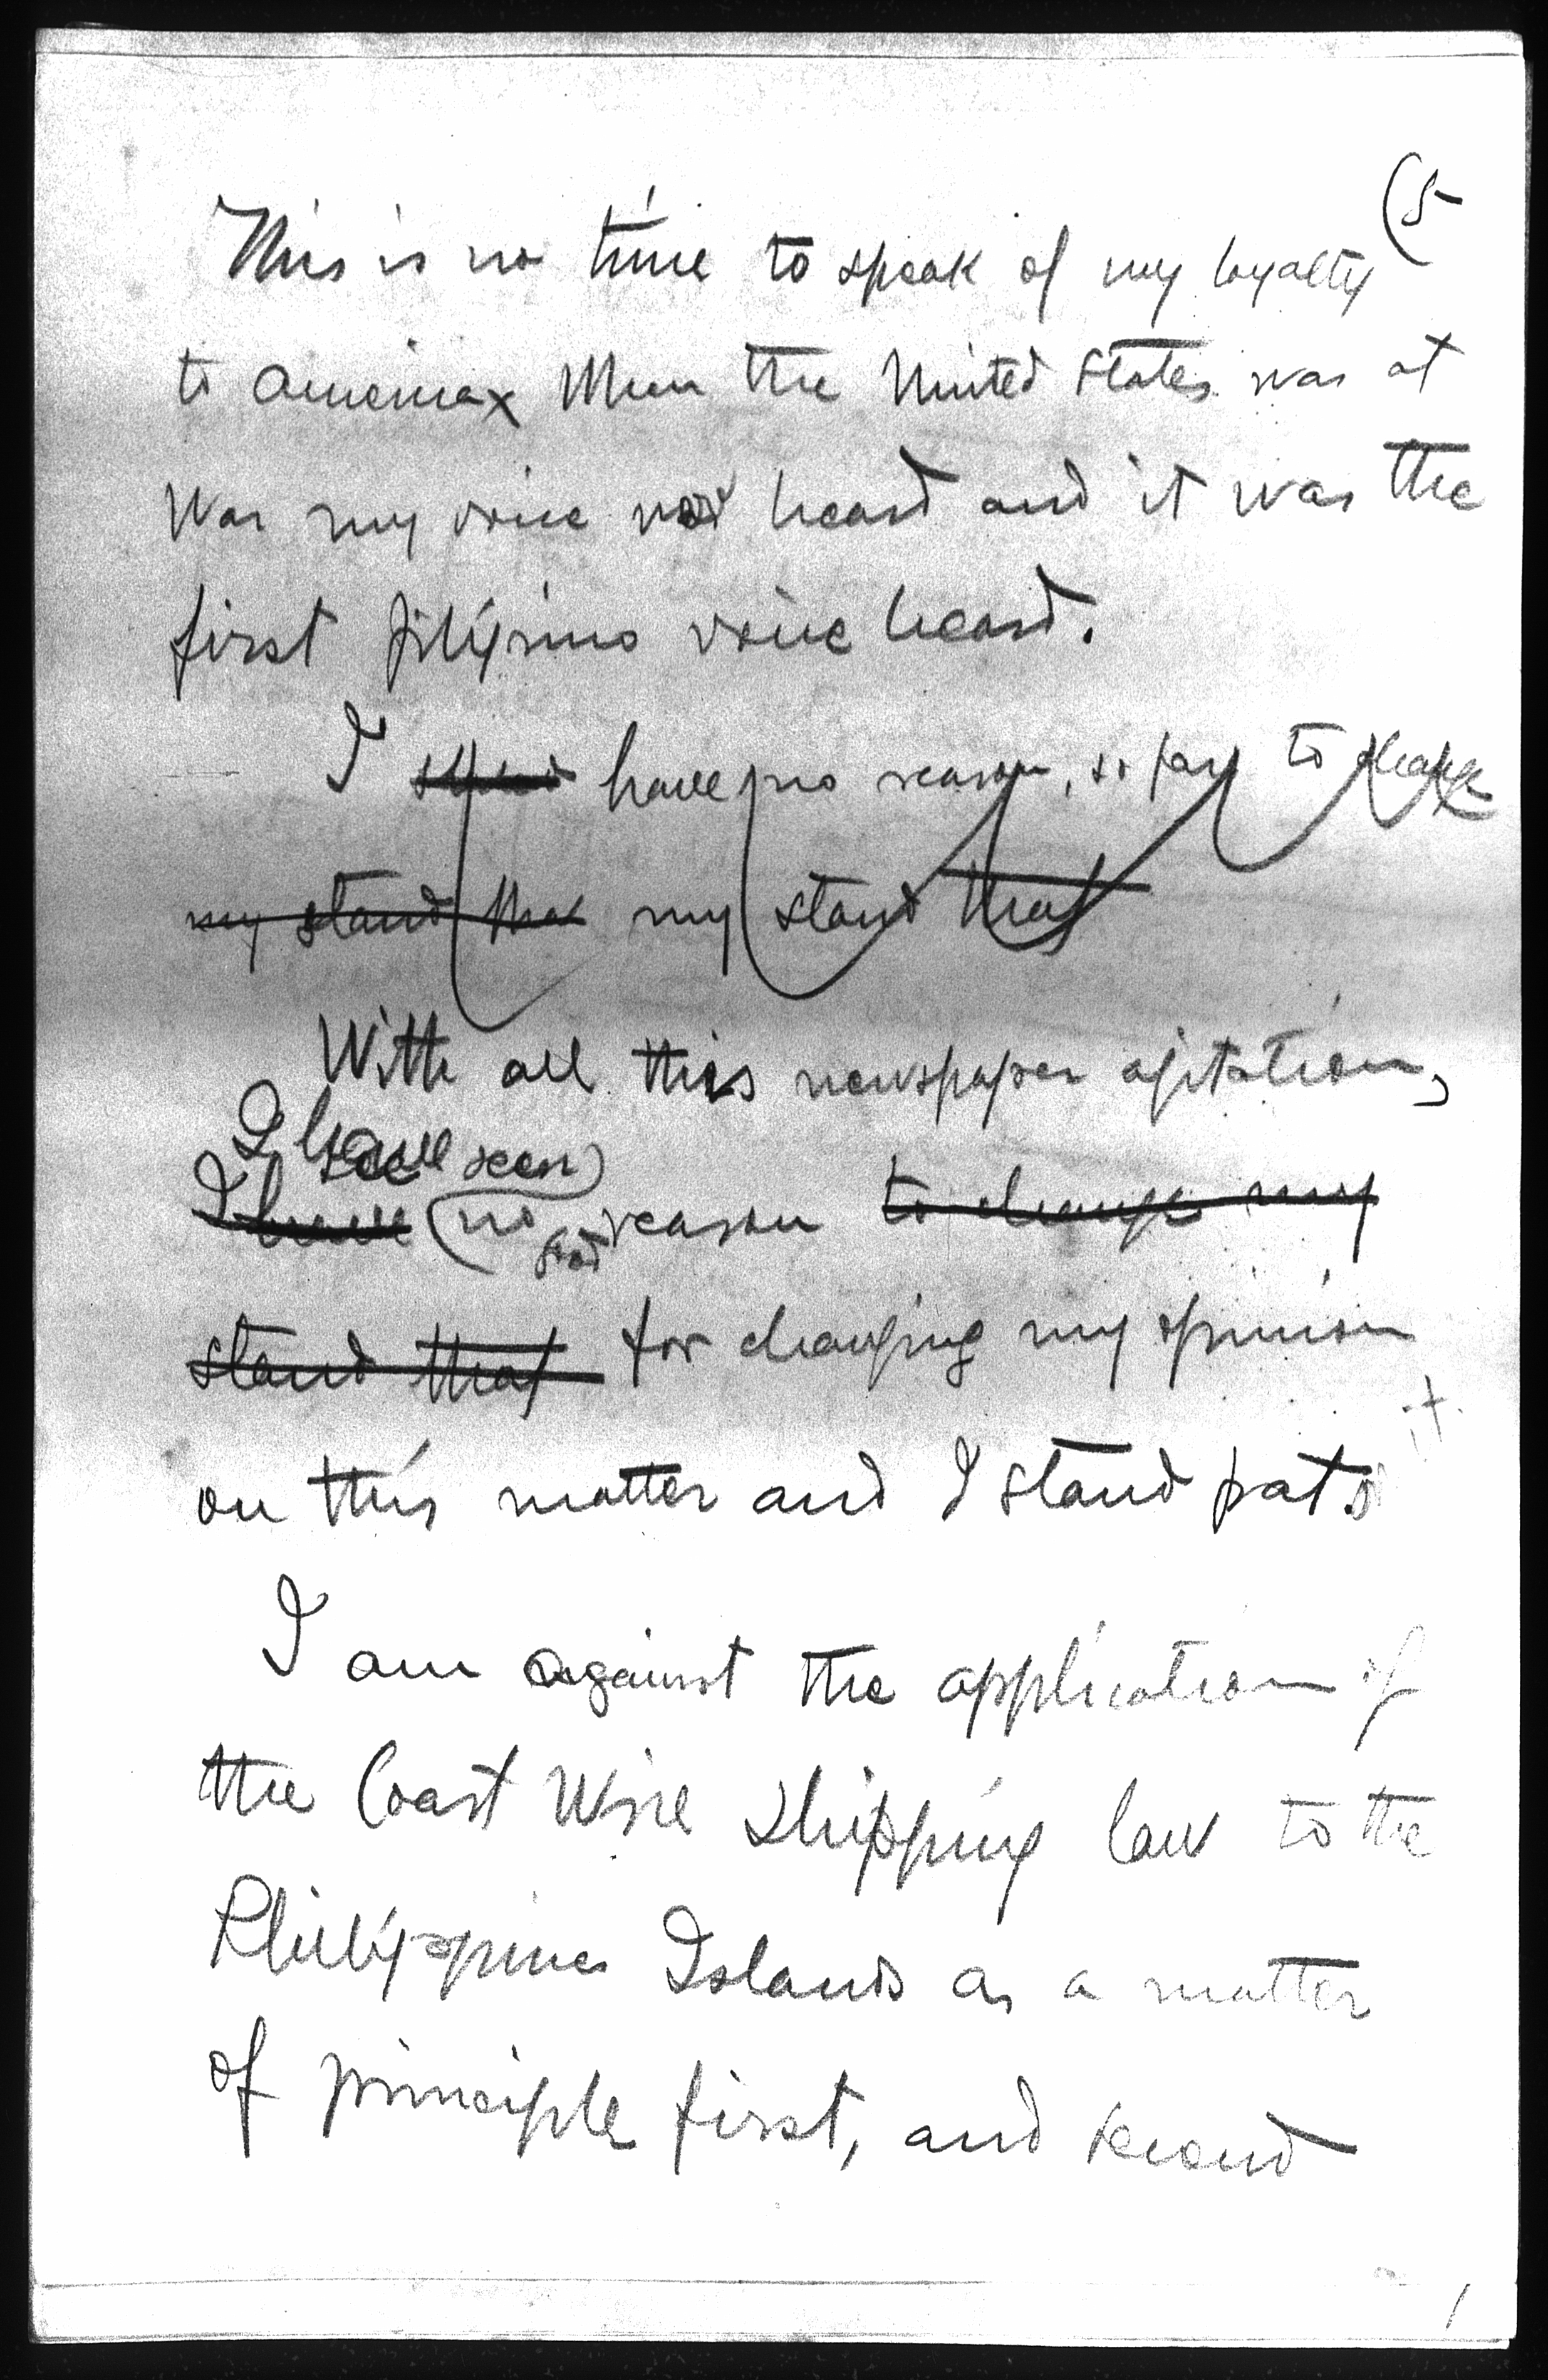 (5
This is no time to speak of my loyalty
to America x When the United States was at
War my voice was heard and it was the
first filipino voice heard.
I have no reason, so far to change
my stand that my stand that
With all this newspaper agitation,
I have seen
I have no reason to change my
stand that for changing my opinion
it.
on this matter and I stand pat.
I am against the application of
the Coast Wise Shipping law to the
Philippines Islands as a matter
of principle first, and second